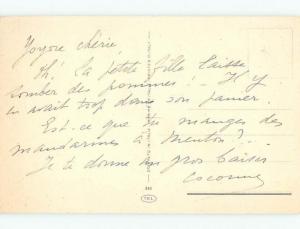 chérie,
Ah! la petite fille laisse
tomber des pommes! - Il y
en avait trop dans son panier.
Est-ce que tu manges des
mandarines à Menton? -
Je te donne un gros baiser